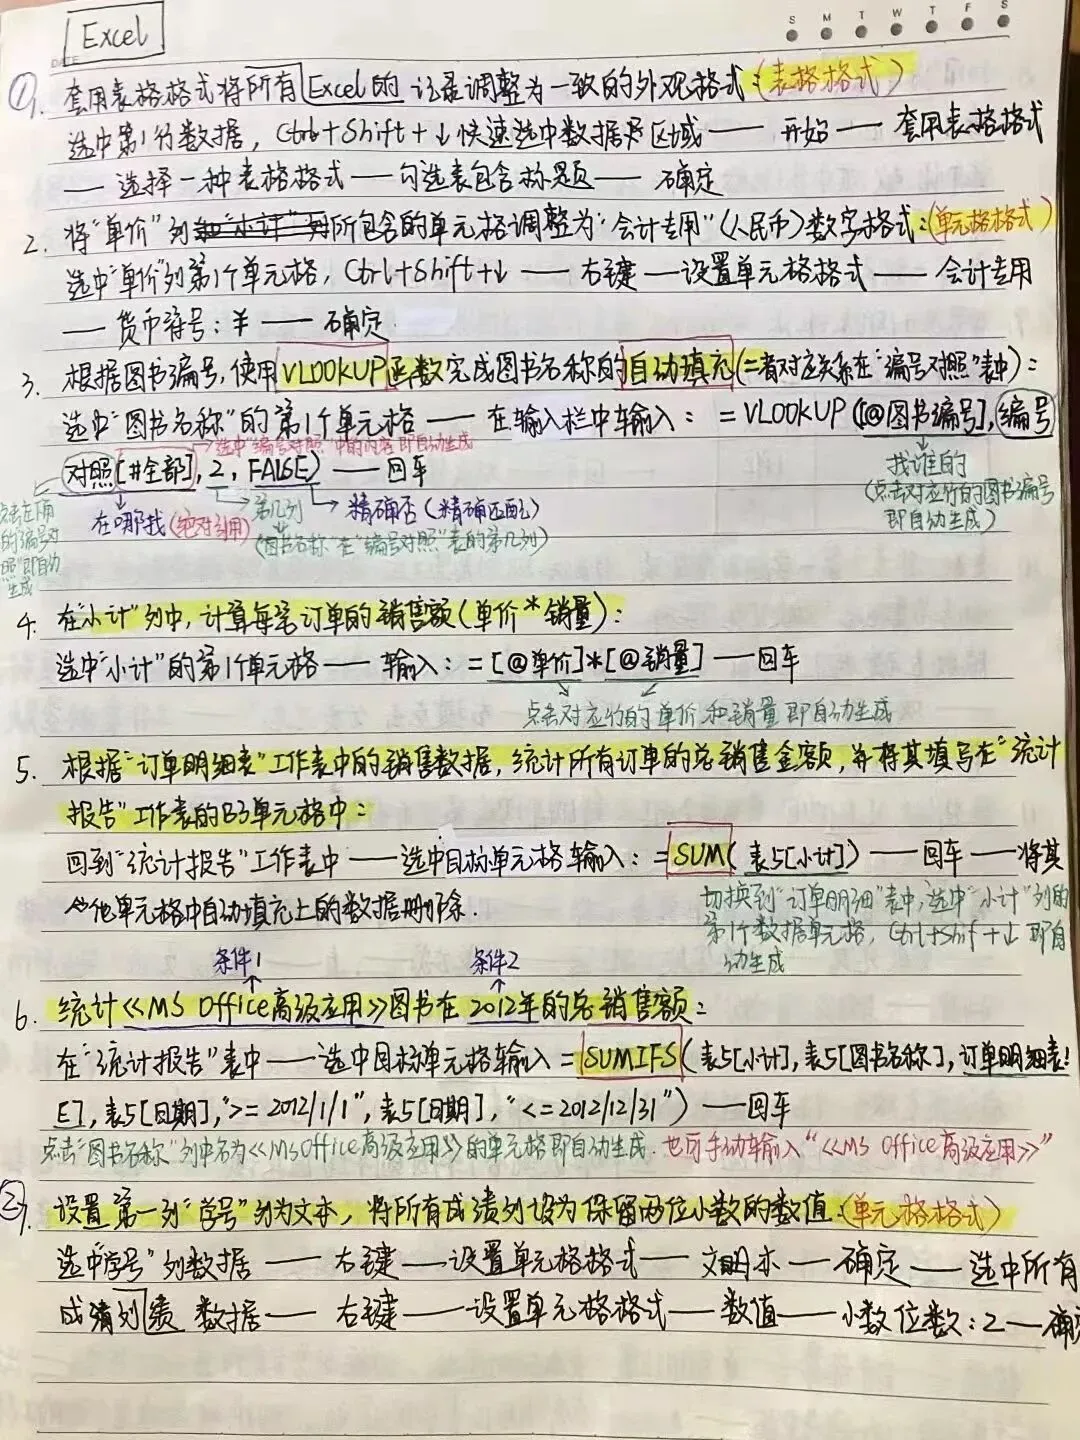 Excel
S M T W T F S
DATE
① 1. 套用表格格式将所有Excel的记录调整为一致的外观格式:(表格格式)
选中第1行数据, Ctrl+Shift+↓快速选中数据区域 — 开始 — 套用表格格式
— 选择一种表格格式 — 勾选表包含标题 — 确定
2. 将“单价”列和“小计”列所包含的单元格调整为“会计专用”(人民币)数字格式:(单元格格式)
选中“单价”列第1个单元格, Ctrl+Shift+↓ — 右键 — 设置单元格格式 — 会计专用
— 货币符号:¥ — 确定.
3. 根据图书编号,使用VLOOKUP函数完成图书名称的自动填充(二者对应关系在“编号对照”表中):
选中“图书名称”的第1个单元格 — 在输入栏中输入: =VLOOKUP([@图书编号],编号
→选中“编号对照”中的内容即自动生成
对照[#全部],2,FALSE) — 回车
找谁的
(点击对应行的图书编号
即自动生成)
点击左角
的编号对
照“即自动
生成
在哪找(绝对引用)
第几列
(“图书名称”在“编号对照”表的第几列)
精确否(精确匹配)
4. 在“小计”列中,计算每笔订单的销售额(单价*销量):
选中“小计”的第1个单元格 — 输入: =[@单价]*[@销量] — 回车
点击对应行的单价和销量即自动生成
5. 根据“订单明细表”工作表中的销售数据,统计所有订单的总销售金额,并将其填写在“统计
报告”工作表的B3单元格中:
回到“统计报告”工作表中 — 选中目标单元格输入: =SUM(表5[小计]) — 回车 — 将其
他单元格中自动填充上的数据删除.
切换到“订单明细”表中,选中“小计”列的
第1个数据单元格, Ctrl+Shif+↓ 即自
动生成
条件1 条件2
6. 统计《MS Office高级应用》图书在2012年的总销售额:
在“统计报告”表中 — 选中目标单元格输入=SUMIFS(表5[小计],表5[图书名称],订单明细表!
E],表5[日期],“>=2012/1/1”,表5[日期],“<=2012/12/31”) — 回车
点击“图书名称”列中名为《MsOffice高级应用》的单元格即自动生成. 也可手动输入“《MS Office高级应用》”
② 1. 设置第一列“学号”列为文本,将所有成绩列设为保留两位小数的数值:(单元格格式)
选中“学号”列数据 — 右键 — 设置单元格格式 — 文本 — 确定 — 选中所有
成绩列 数据 — 右键 — 设置单元格格式 — 数值 — 小数位数:2 — 确定